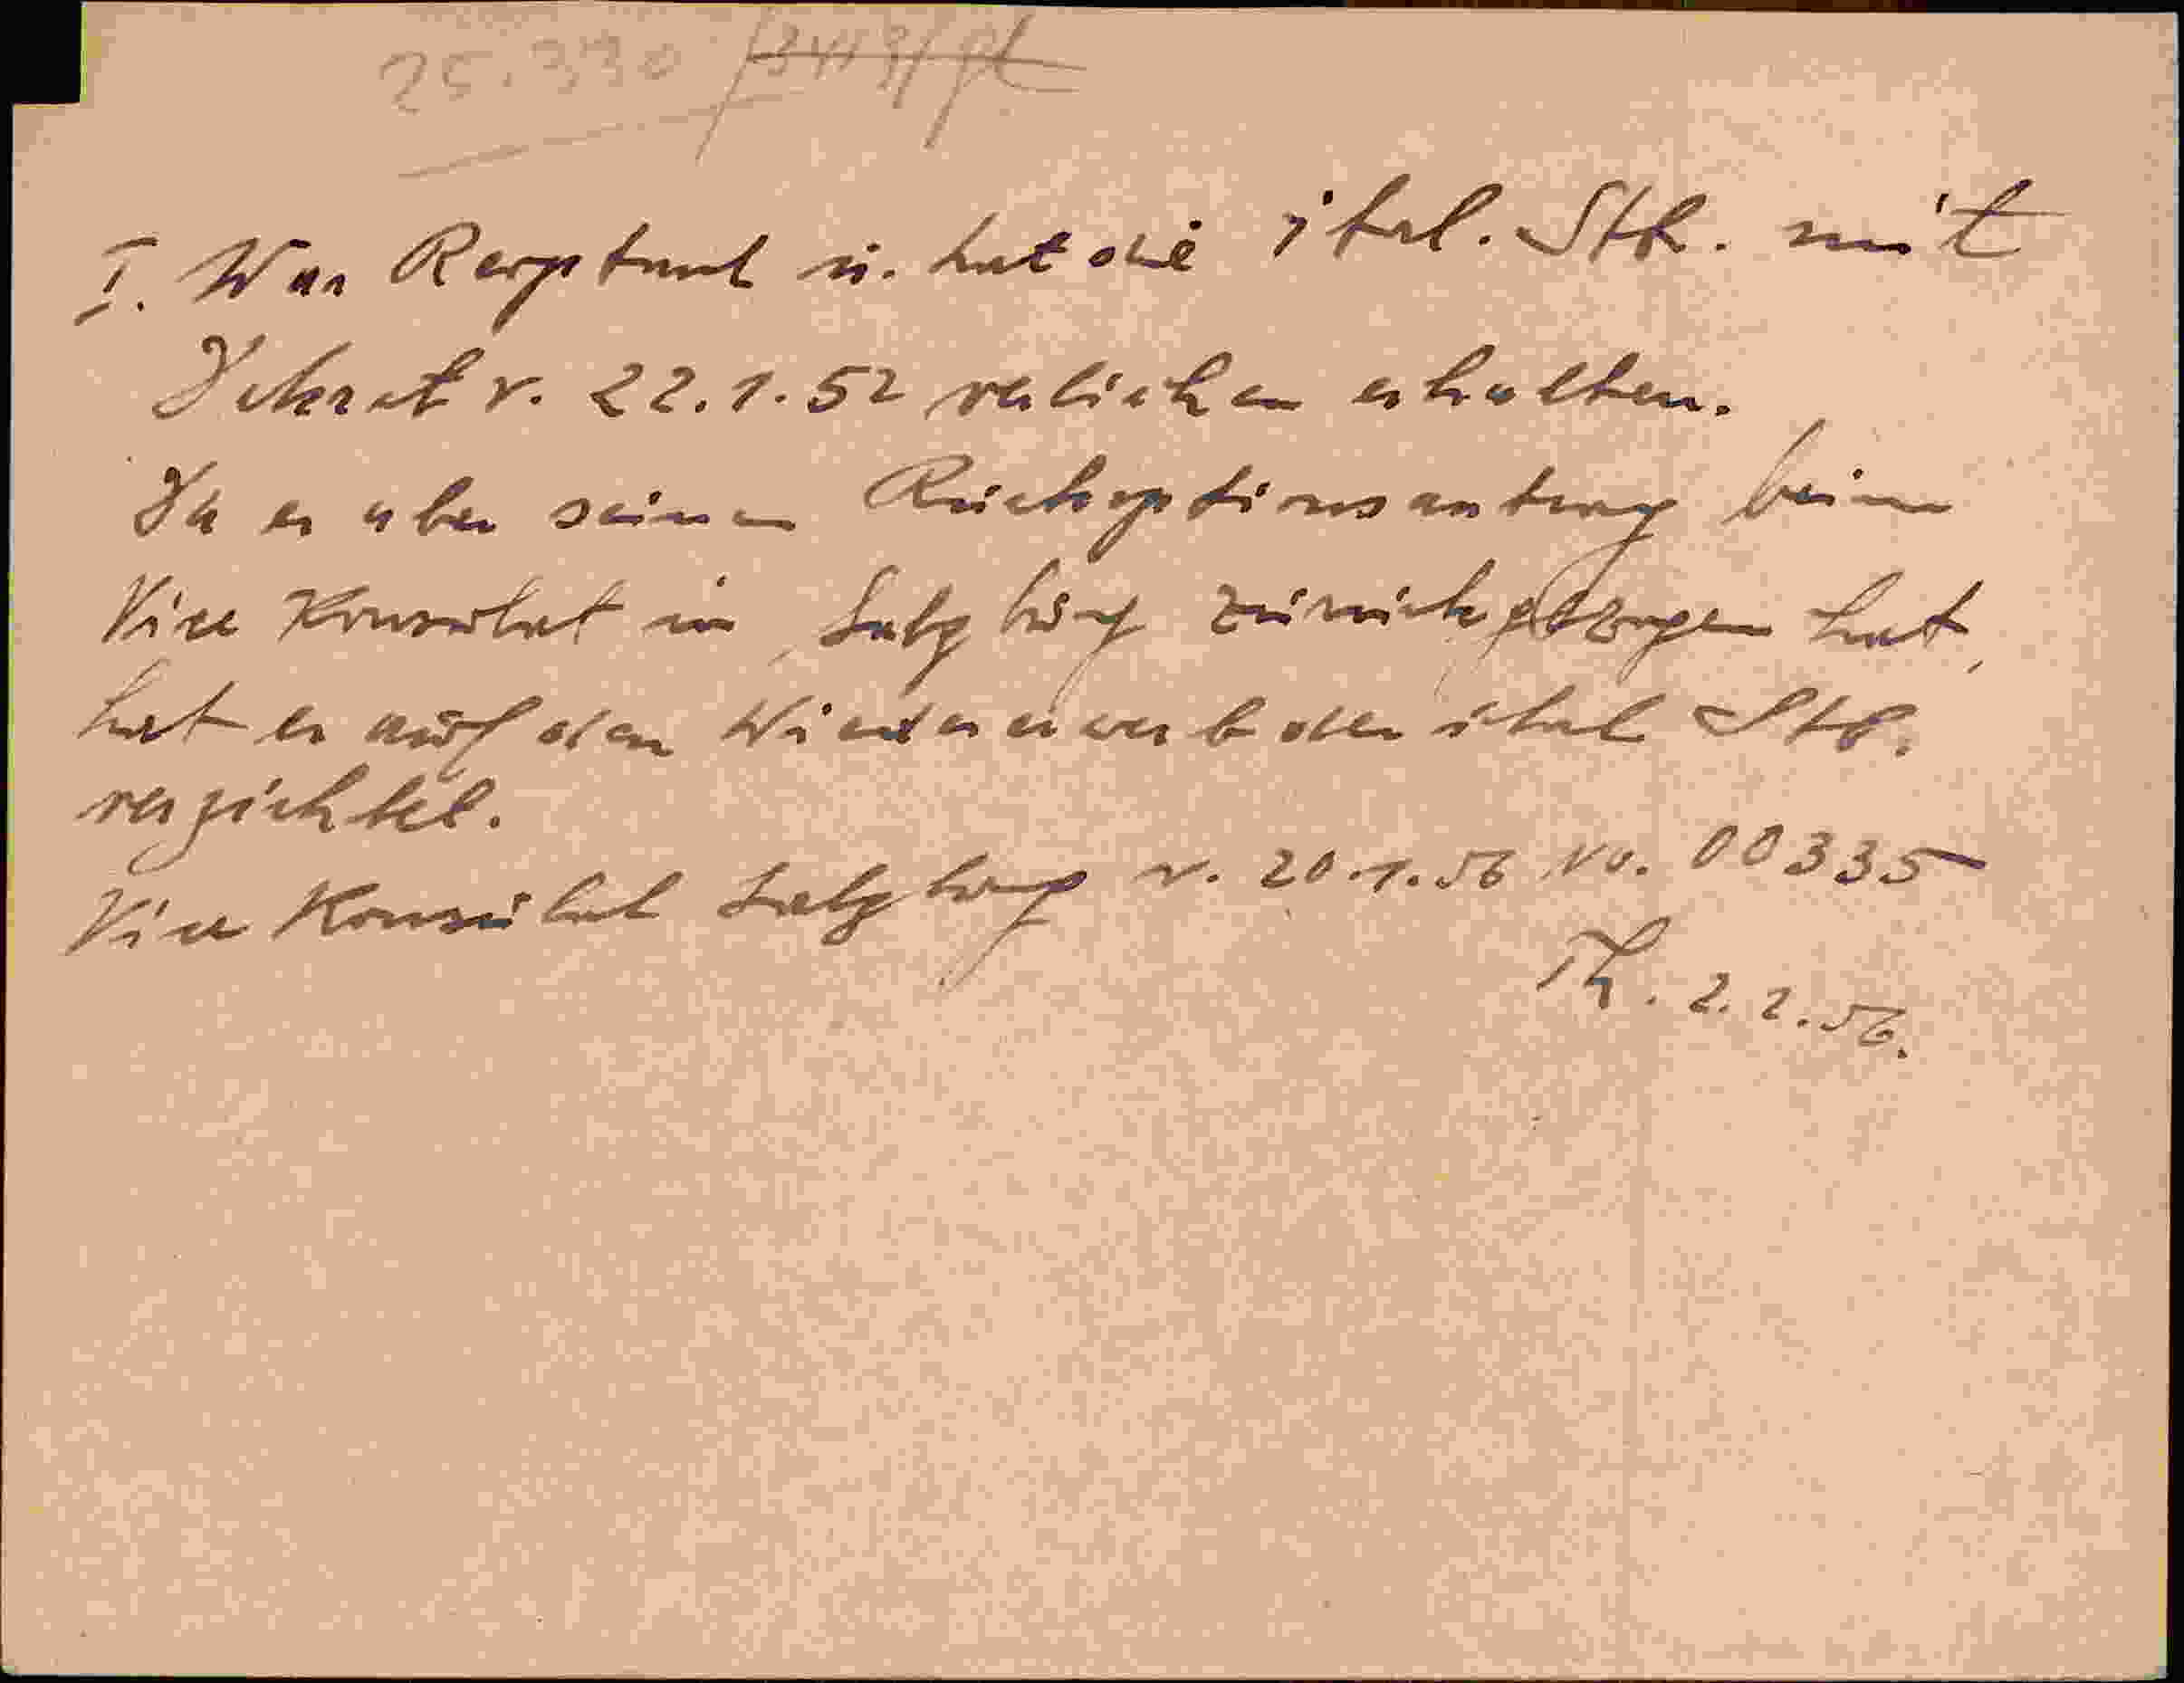 25.330
I. War Reoptant u. hat die ital. Stb. mit
Dekret v. 22.1.52 verliehen erhalten.
Da er aber seinen Rückoptionsantrag beim
Vice Konsulat in Salzburg zurückgezogen hat,
hat er auf den Wiedererwerb der ital Stb.
verzichtet.
Vice Konsulat Salzburg v. 20.1.56 No. 00335
Th. 2.2.56.